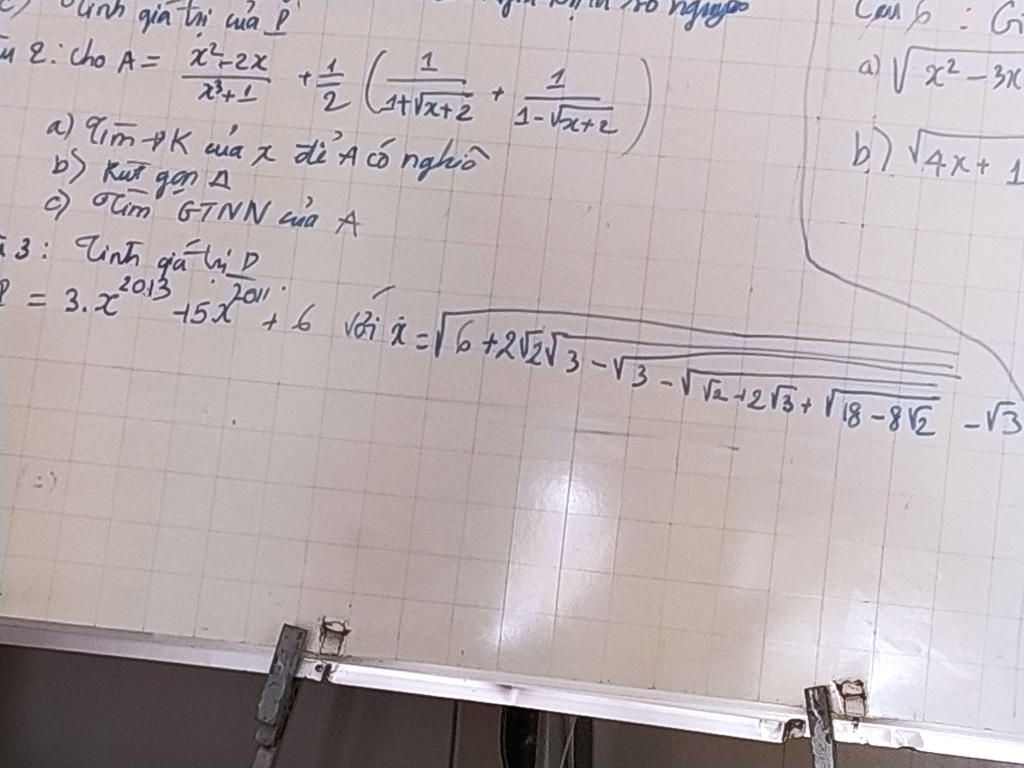 c) Tính giá trị của P
Câu 2: Cho A = \frac{x^2-2x}{x^3+1} + \frac{1}{2} ( \frac{1}{1+\sqrt{x+2}} + \frac{1}{1-\sqrt{x+2}} )
a) Tìm ĐK của x để A có nghĩa
b) Rút gọn A
c) Tìm GTNN của A
3: Tính giá trị P
P = 3.x^{2013} + 5x^{2011} + 6 với x = \sqrt{6+2\sqrt{2}\sqrt{3-\sqrt{3-\sqrt{\sqrt{2}+2\sqrt{3}+\sqrt{18-8\sqrt{2}}}}}} - \sqrt{3}
Câu 6 : Gi
a) \sqrt{x^2-3x
b) \sqrt{4x+1